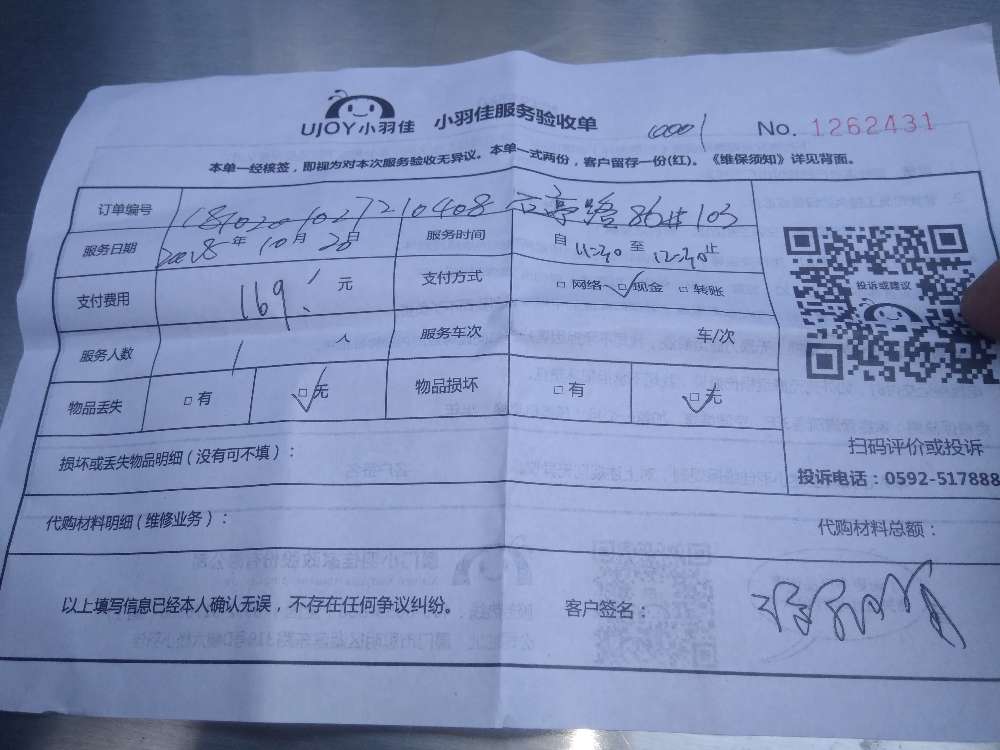 UJOY小羽佳 小羽佳服务验收单 No. 1262431
本单一经核签，即视为对本次服务验收无异议。本单一式两份，客户留存一份(红)。《维保须知》详见背面。
订单编号 86#103
服务日期 2018年10月28日 服务时间 自11:30至12:30止
支付费用 169.元 支付方式 □网络 □现金 □转账
服务人数 1人 服务车次 车/次
物品丢失 □有 □无 物品损坏 □有 □无
投诉或建议
扫码评价或投诉
投诉电话：0592-517888
损坏或丢失物品明细（没有可不填）：
代购材料明细（维修业务）： 代购材料总额：
以上填写信息已经本人确认无误，不存在任何争议纠纷。 客户签名：